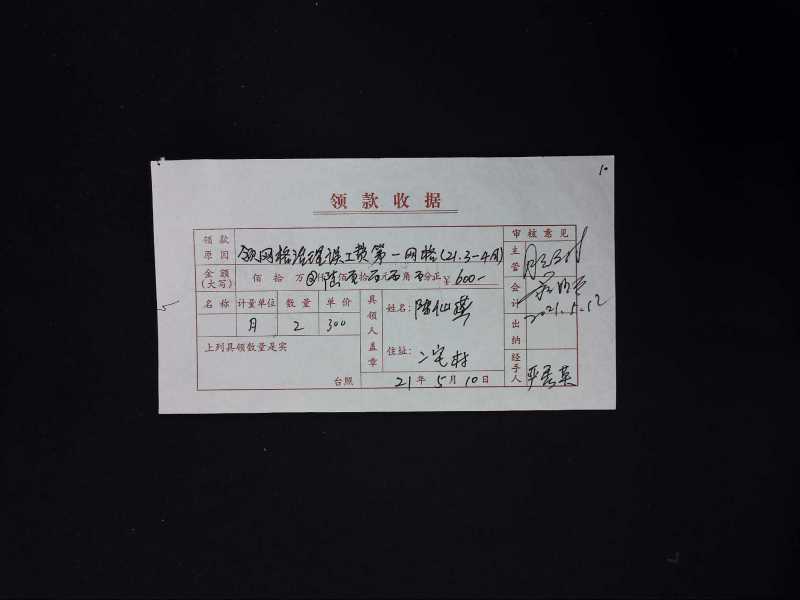 10
领款收据
领款原因 领网格治理误工费第一网格(21.3-4月)
审核意见
金额(大写) 佰拾万仟陆佰零拾零元零角零分正 ¥600-
主管
会计
2021.5.12
名称 计量单位 数量 单价
月 2 300
具领人盖章
姓名: 陈仙
住址: 二宅村
出纳
上列具领数量是实
台照
21年5月10日
经手人 严秀英